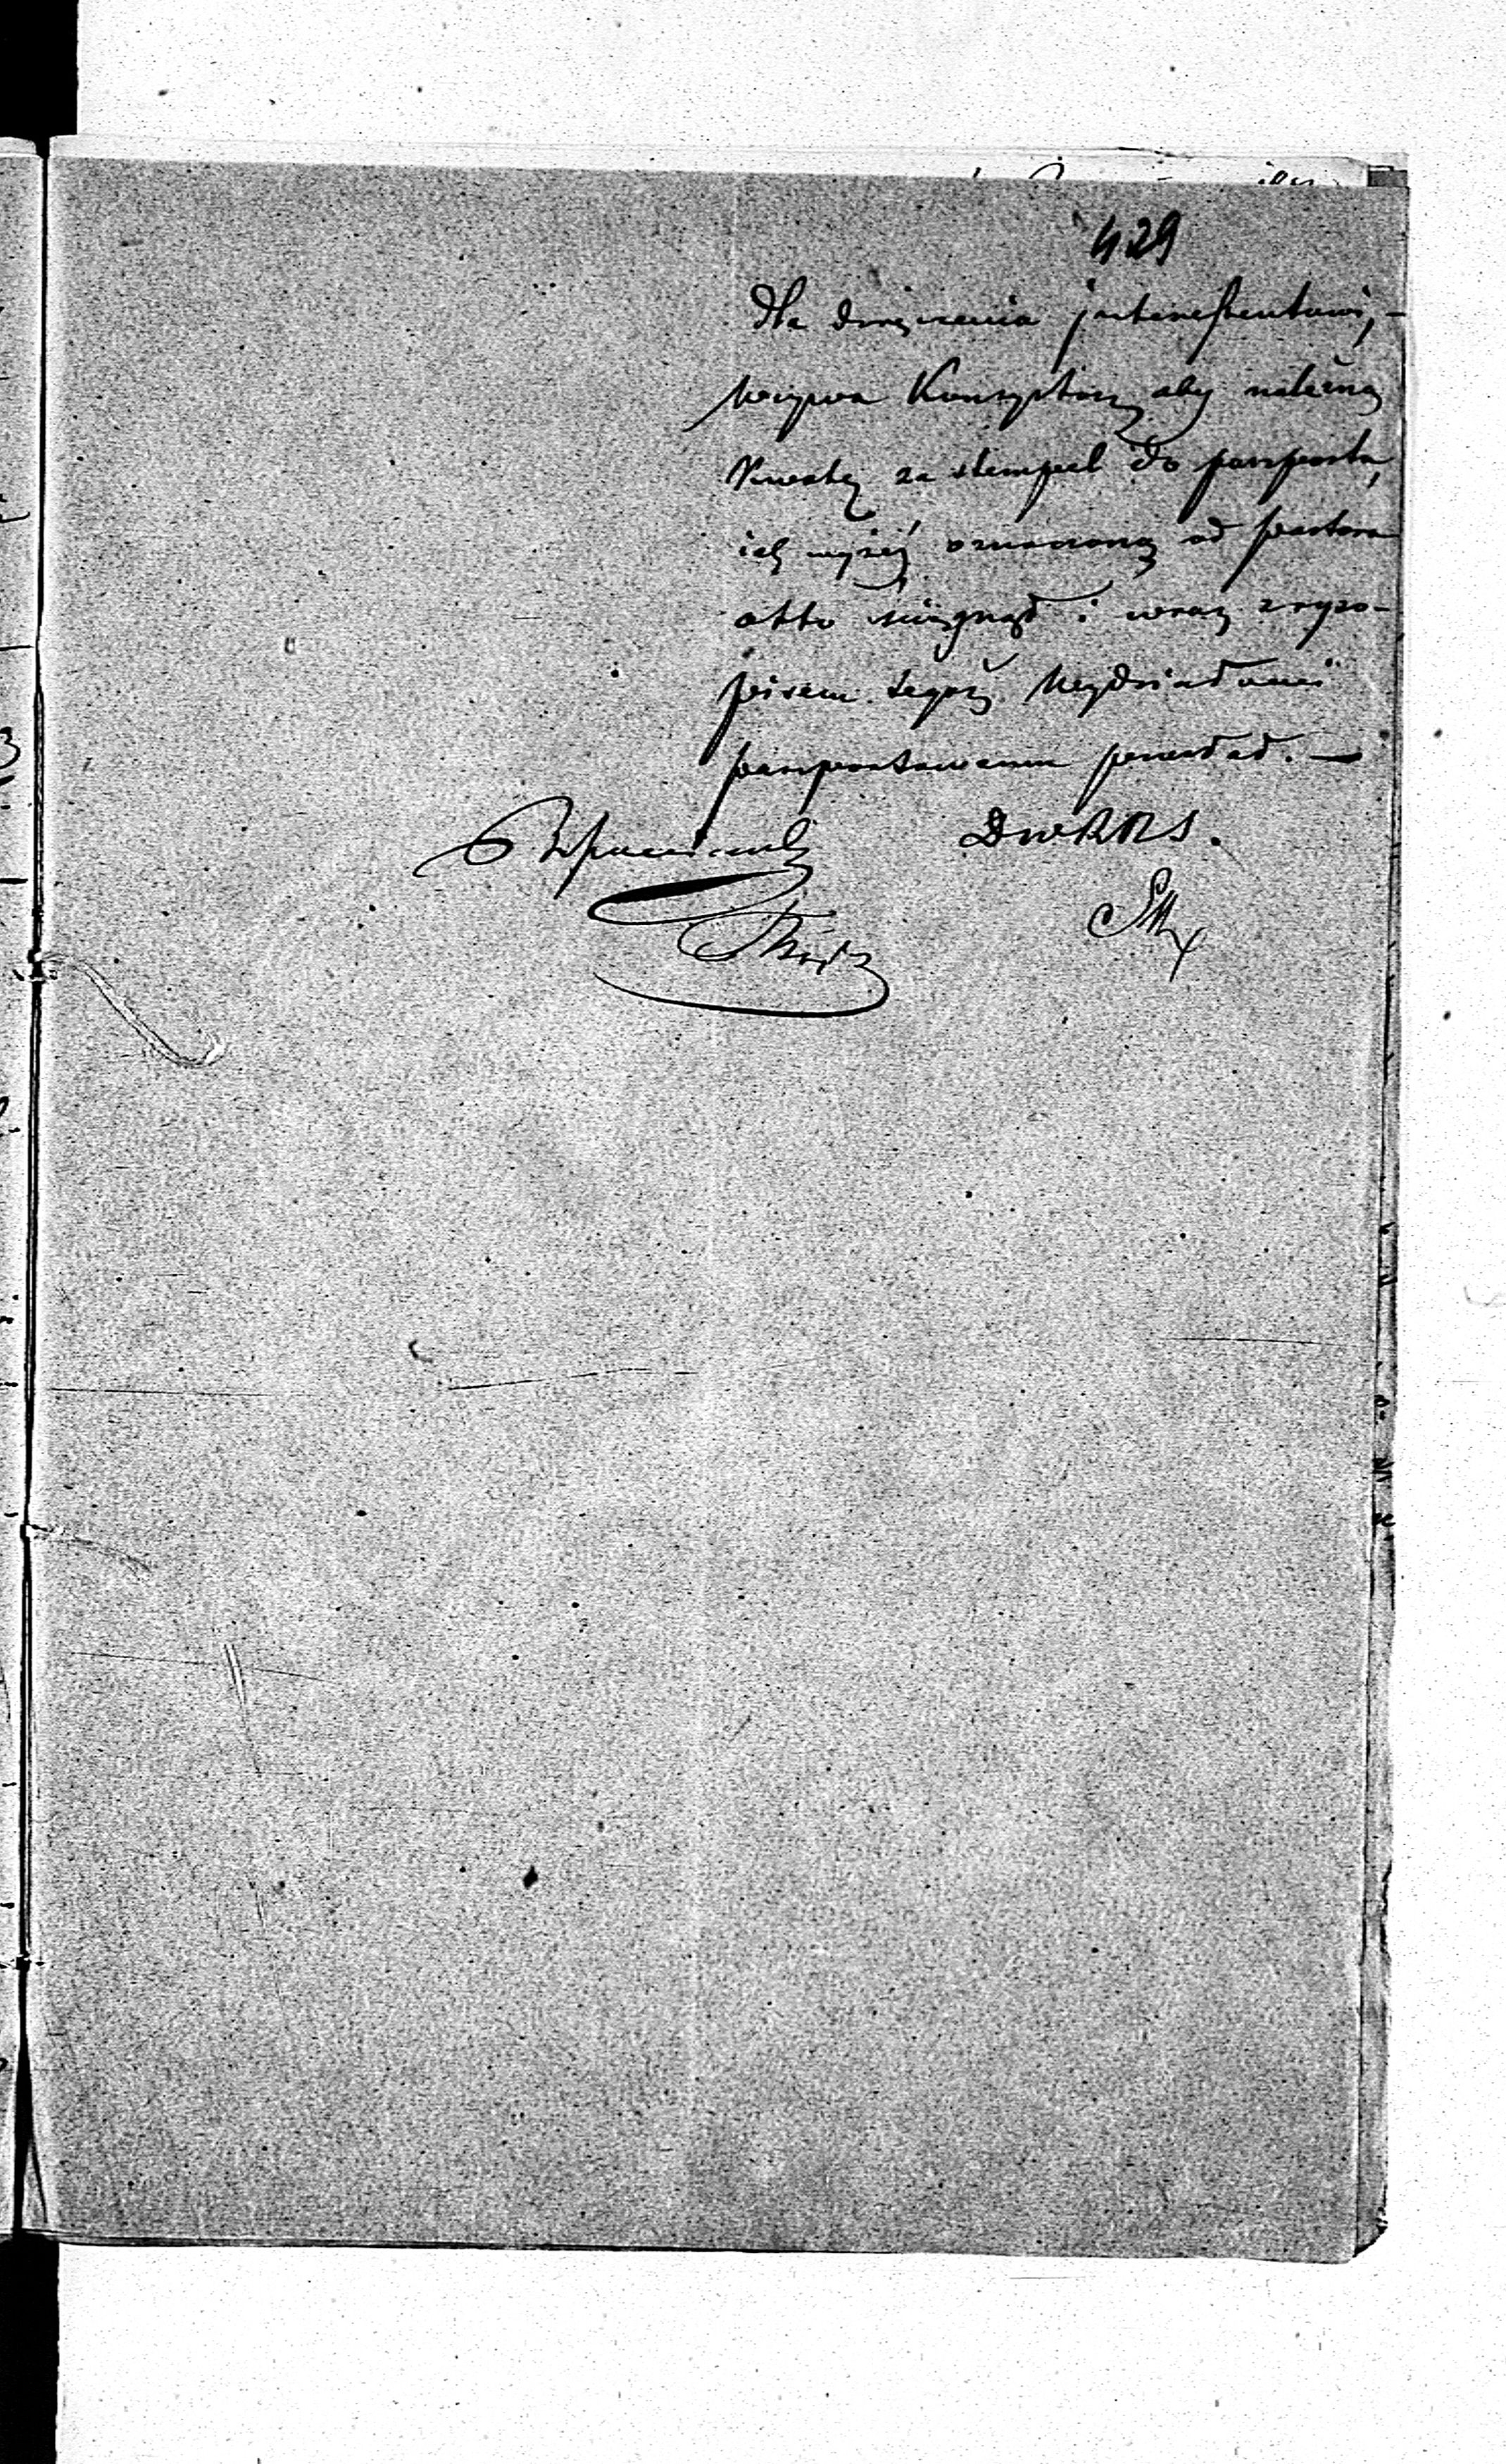 429
dla doręczenia interessentowi,-
wzywa Konsystorz aby należną
kwotę za stempel do paszportu,
jak wyżej oznaczoną od pastora
Otto ściągnął i wraz z ryzo-
pisem tegoż Wydziałowi
paszportowemu przesłał. —
DwRRS.